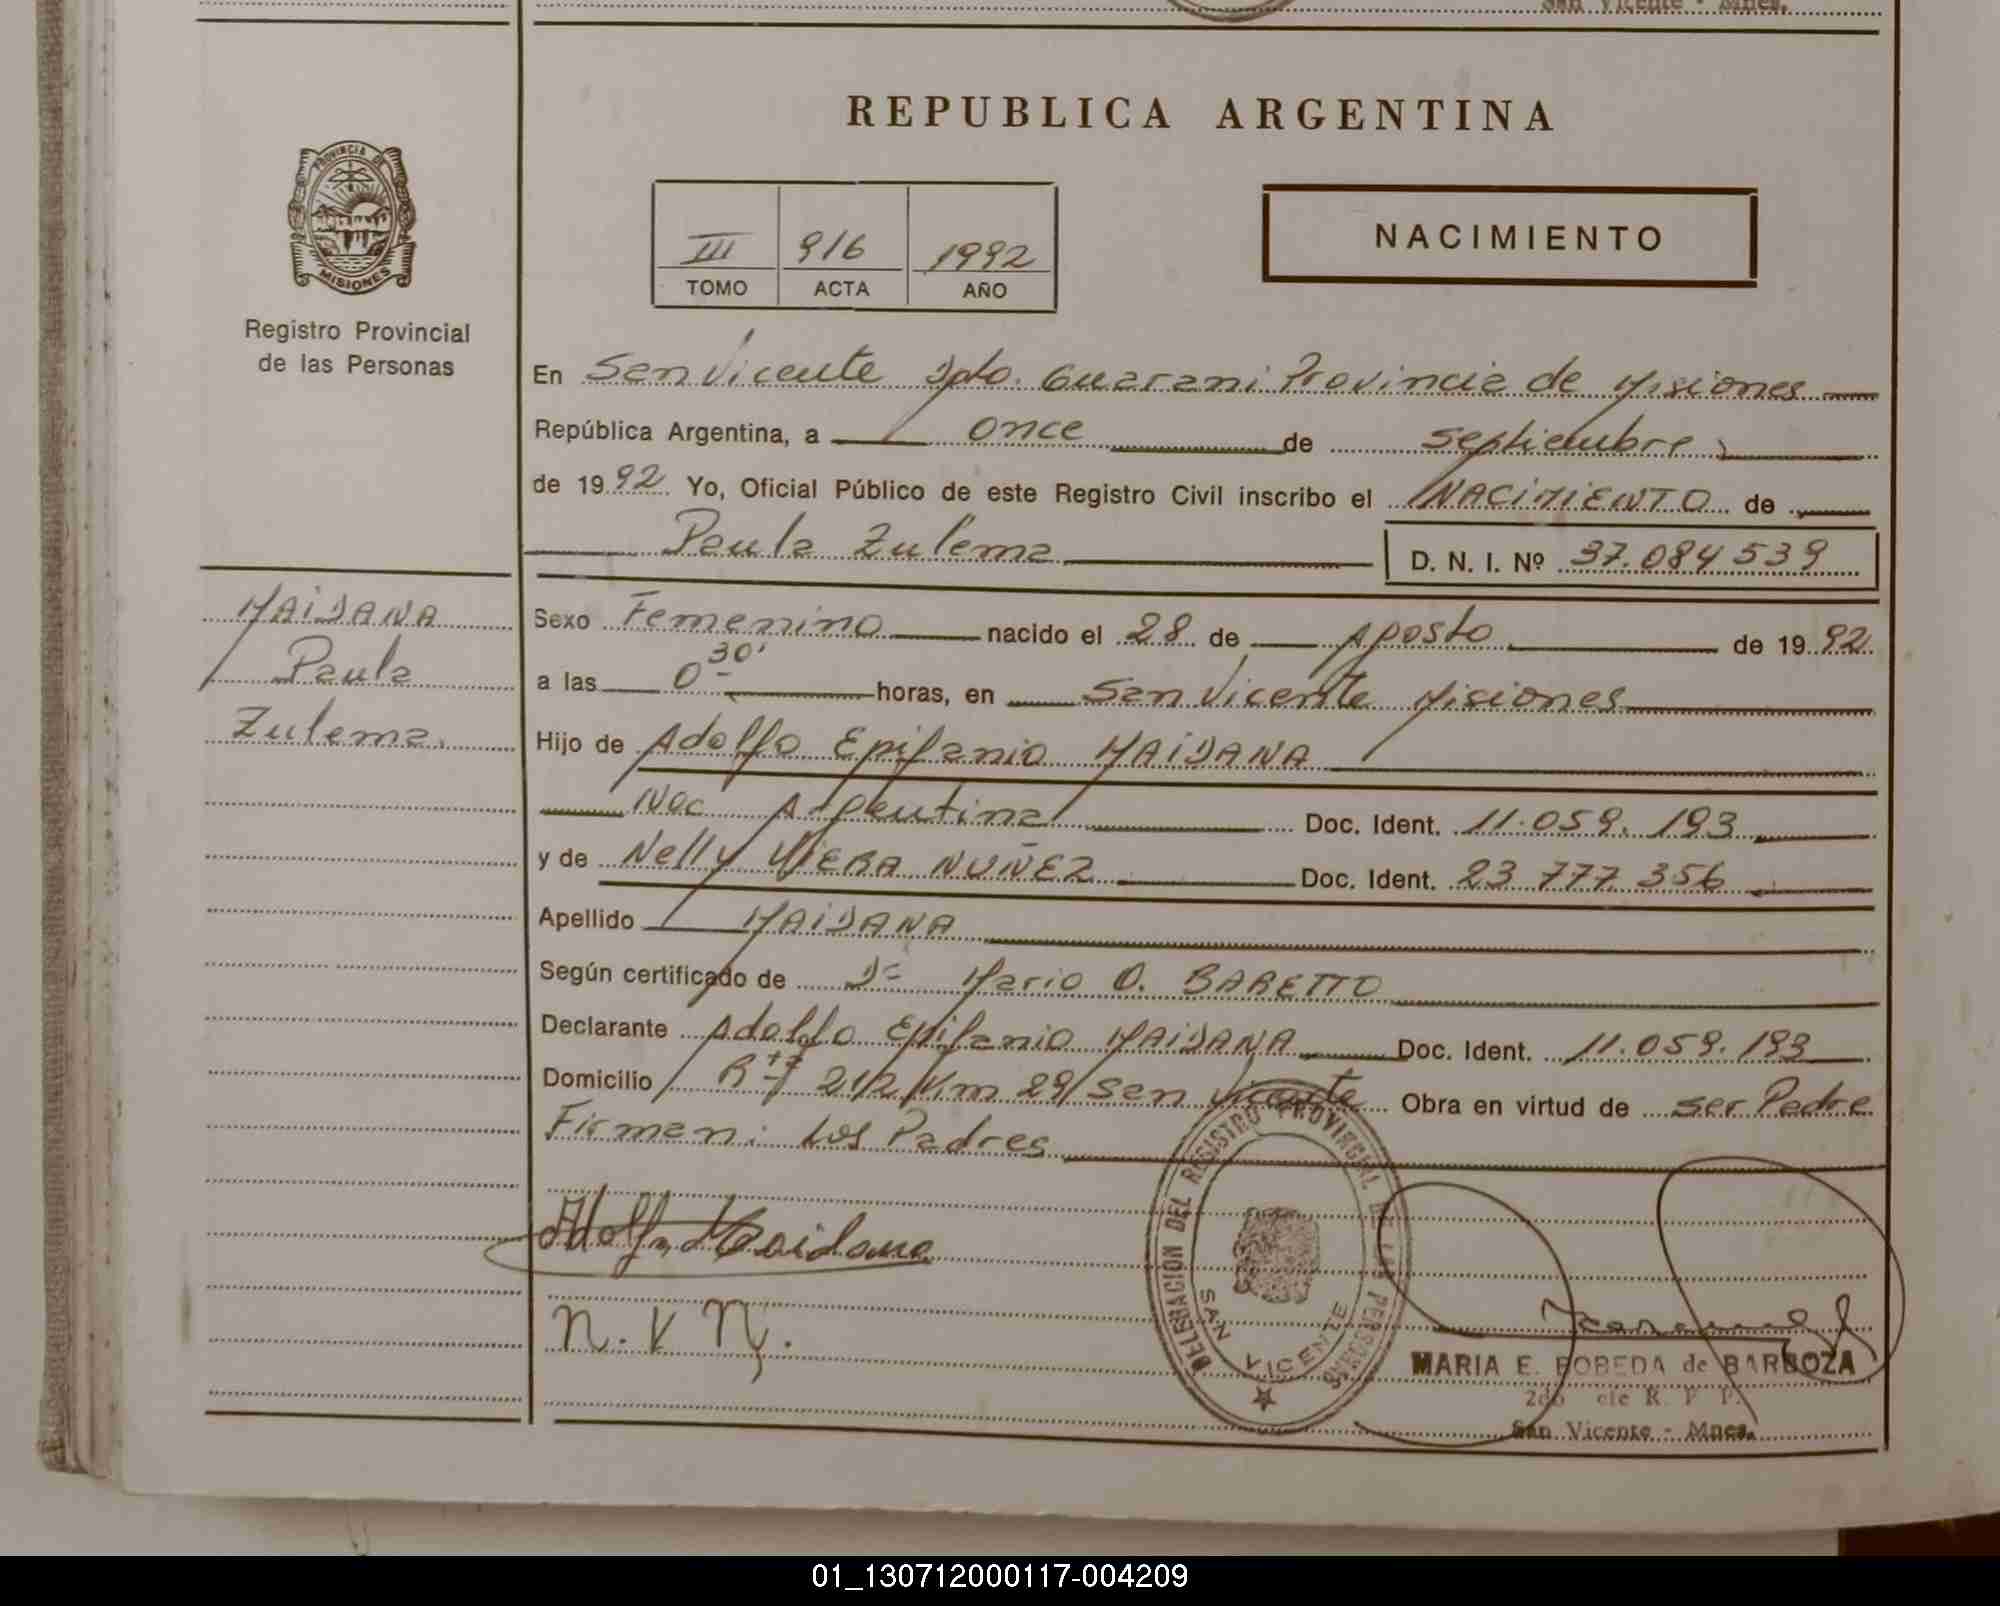 San Vicente - Mnes.
REPUBLICA ARGENTINA
PROVINCIA DE
MISIONES
Registro Provincial
de las Personas
III 916 1992
TOMO ACTA AÑO
NACIMIENTO
En San Vicente Dpto. Guarani Provincia de Misiones
República Argentina, a once de septiembre
de 1992 Yo, Oficial Público de este Registro Civil inscribo el NACIMIENTO de
Paula Zulema D. N. I. Nº 37.084539
MAIDANA
Paula
Zulema.
Sexo Femenino nacido el 28 de Agosto de 1992
a las 0 30' horas, en San Vicente Misiones
Hijo de Adolfo Epifanio MAIDANA
Nac. Argentina Doc. Ident. 11.059.193
y de Nelly VIERA NUÑEZ Doc. Ident. 23 777 356
Apellido MAIDANA
Según certificado de Dr Mario O. BARETTO
Declarante Adolfo Epifanio MAIDANA Doc. Ident. 11.059.193
Domicilio 212 Km 29 San Vicente Obra en virtud de ser Padre
Firman: Los Padres
Adolfo Maidana
N. V N.
DELEGACION DEL REGISTRO PROVINCIAL DE LAS PERSONAS
SAN VICENTE
MARIA E. POBEDA de BARBOZA
R. P. P.
San Vicente - Mnes.
01_130712000117-004209